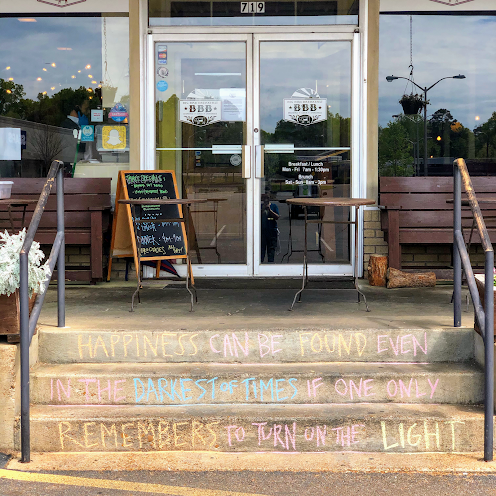 719
BBB
BBB
Breakfast / Lunch
Mon - Fri 7am - 1:30pm
Brunch
Sat - Sun 8am - 3pm
HAPPINESS CAN BE FOUND EVEN
IN THE DARKEST OF TIMES IF ONE ONLY
REMEMBERS TO TURN ON THE LIGHT